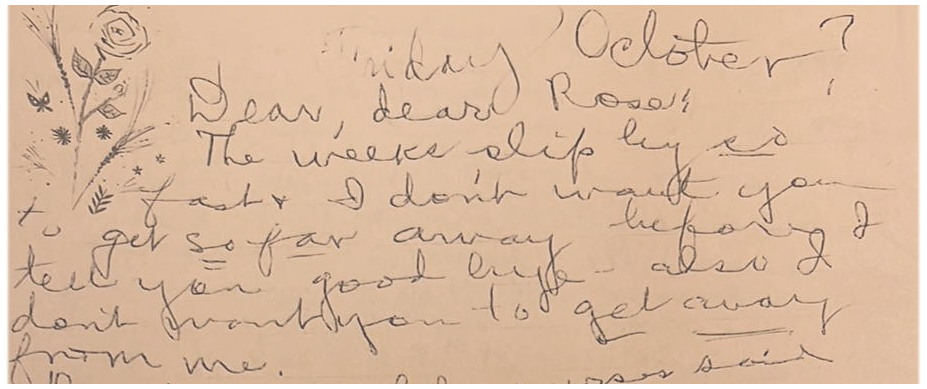 Friday October?
Dear, dear Rose:
The weeks slip by so
fast & I don't want you
to get so far away before I
tell you good bye - also I
don't want you to get away
from me.
said